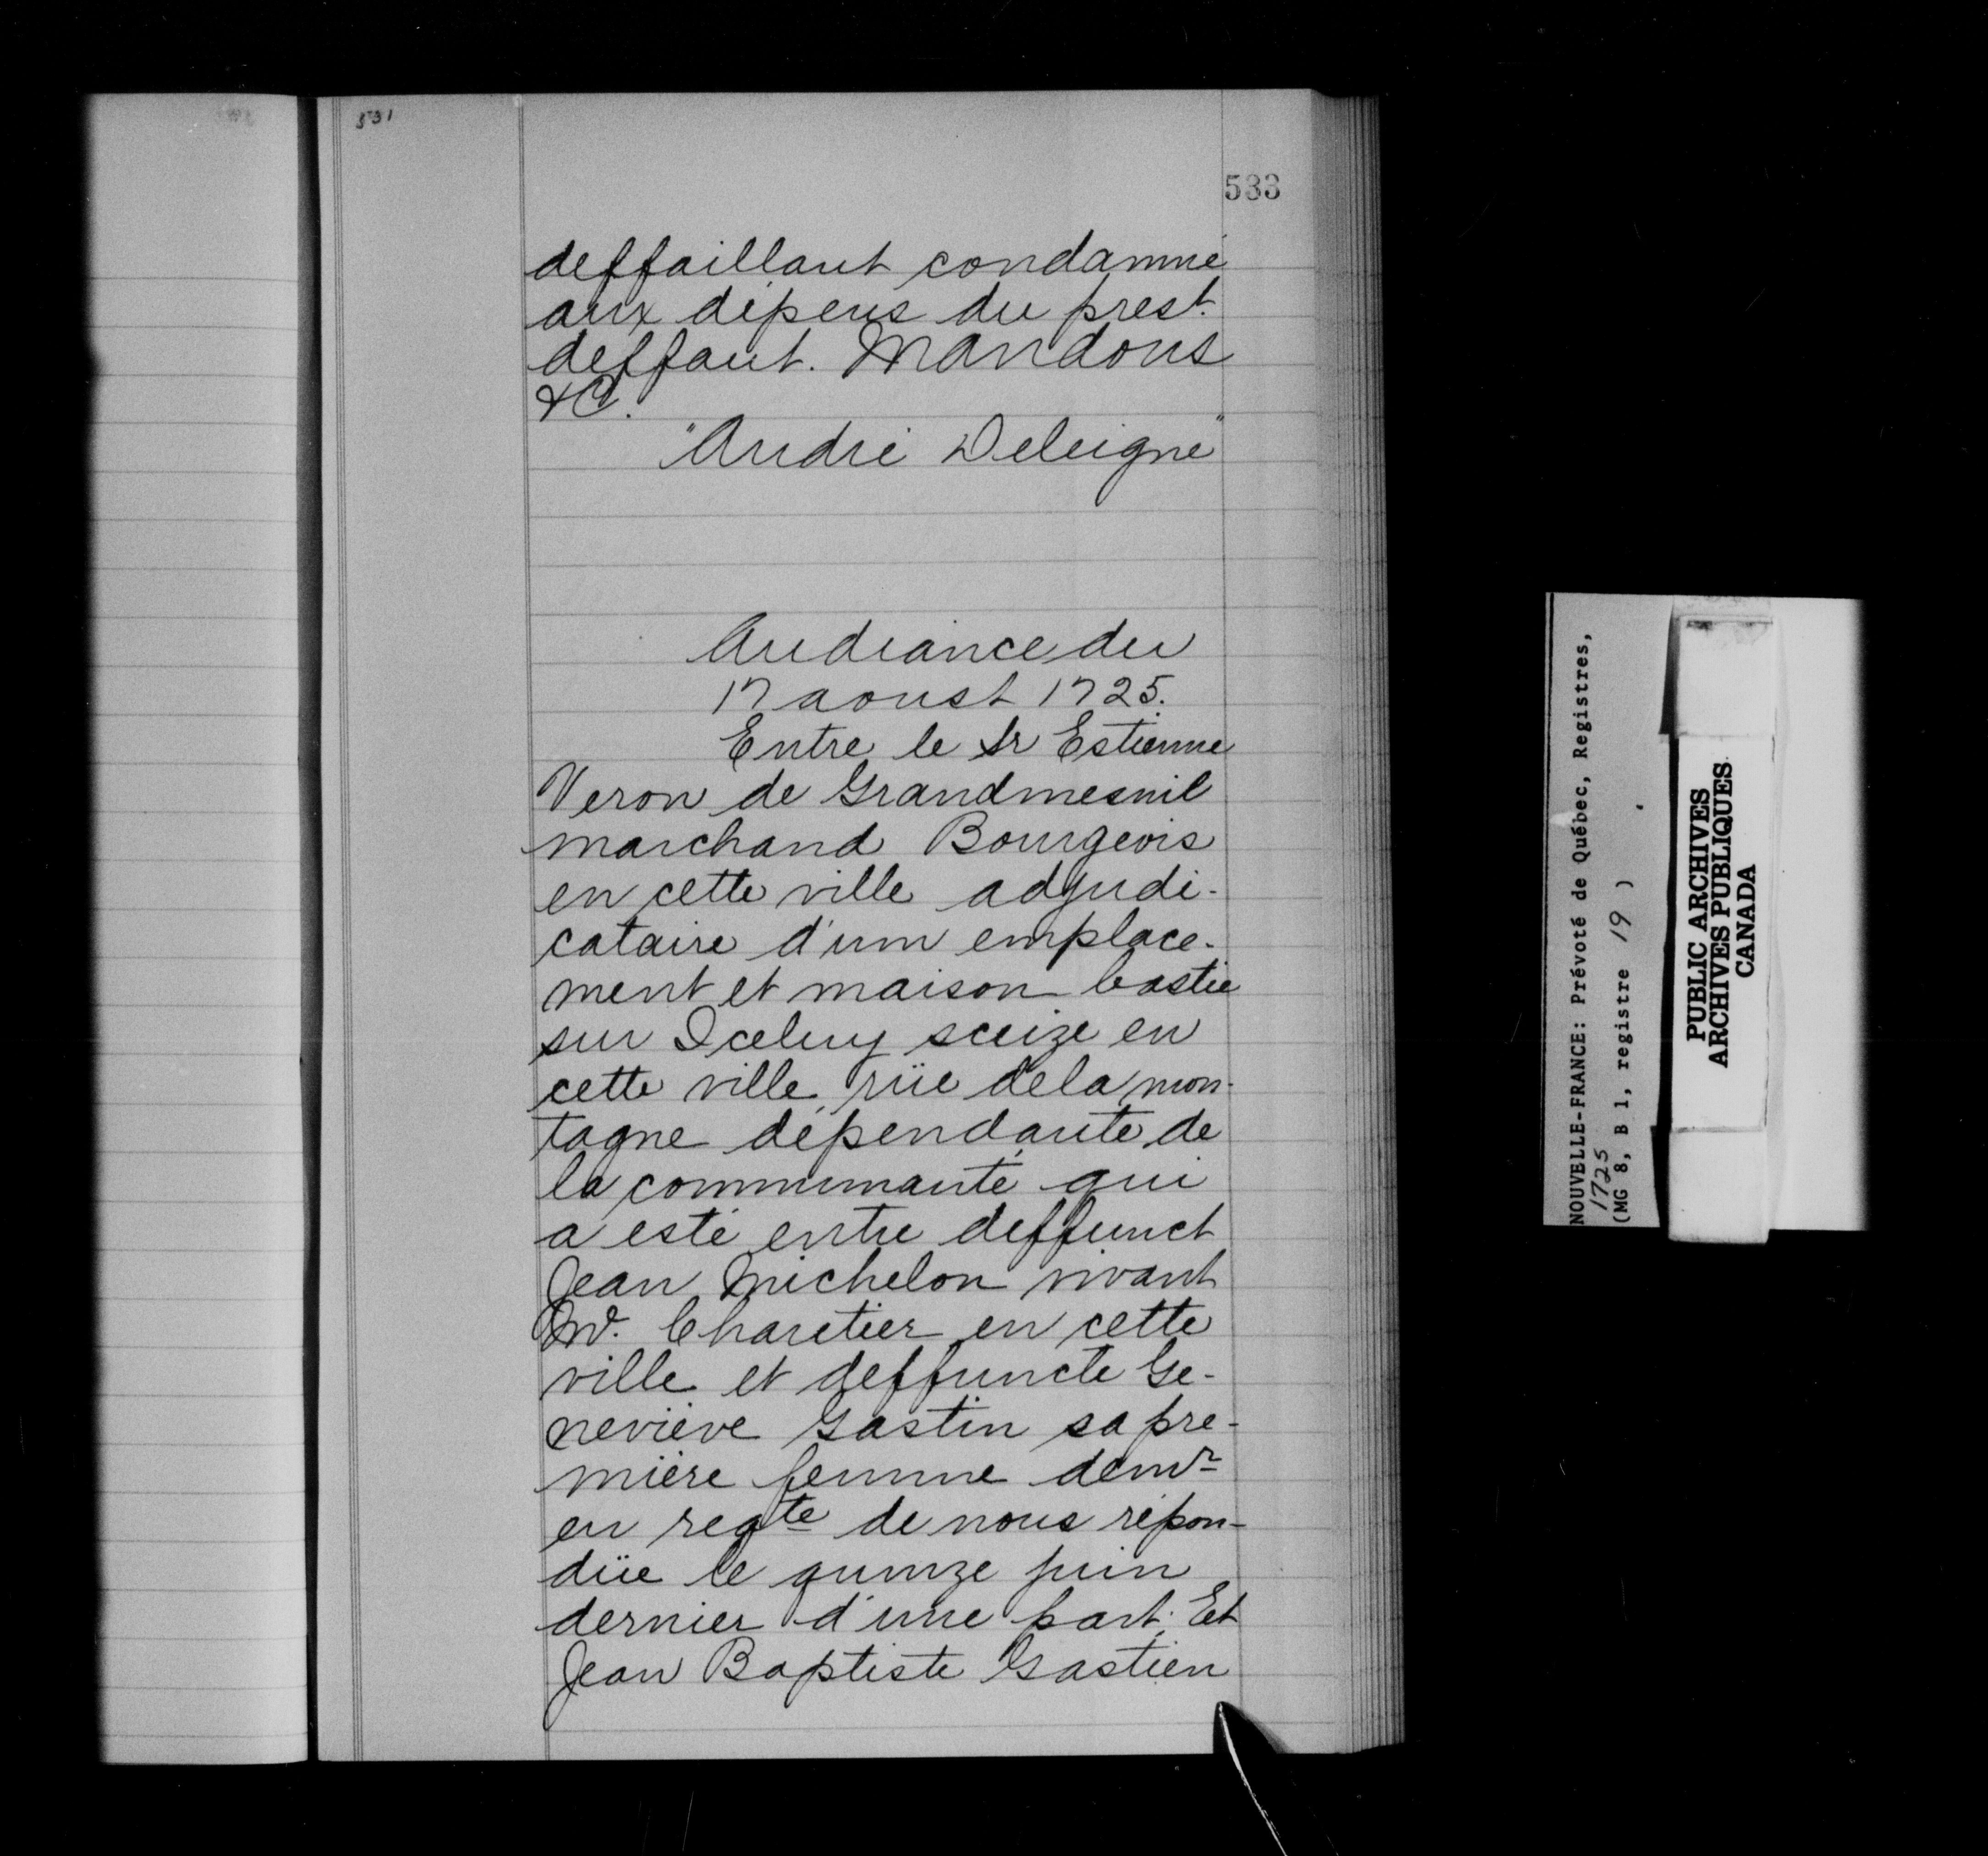 531
533
deffaillant condamné
aux dépens du prest.
deffaut. Mandons
&C.
"André Deleigne"
Audiance du
17 aoust 1725.
Entre le Sr Estienne
Veron de Grandmesnil
marchand Bourgeois
en cette ville adjudi-
cataire d'un emplace-
ment et maison bastie
sur Iceluy sceize en
cette ville, rüe dela mon-
tagne dépendante de
la communauté qui
a esté entre deffunct
Jean Michelon vivant
Me. Charetier en cette
ville et deffuncte Ge-
neviève Gastin sa pre-
mière femme demr
en reqte de nous répon-
düe le quinze juin
dernier d'une part; Et
Jean Baptiste Gastien
NOUVELLE-FRANCE: Prévoté de Québec, Registres,
1725
(MG 8, B 1, registre 19 ) .
PUBLIC ARCHIVES
ARCHIVES PUBLIQUES
CANADA